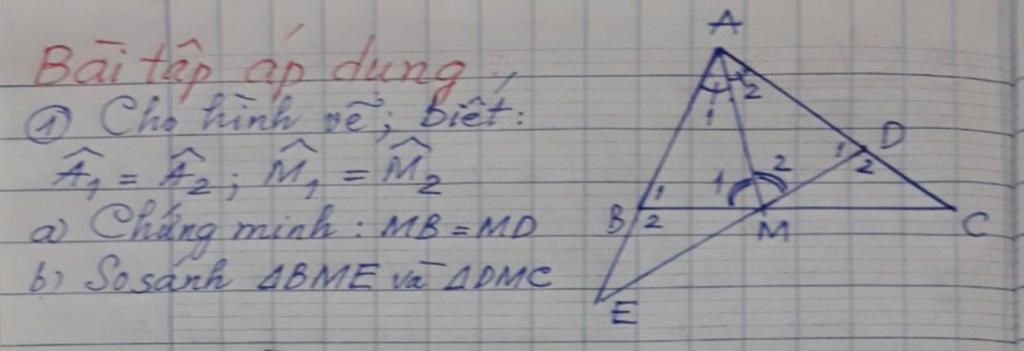 Bài tập áp dụng:
① Cho hình vẽ; biết:
Â₁ = Â₂; M̂₁ = M̂₂
a) Chứng minh: MB = MD
b) So sánh ΔBME và ΔDMC
A
1 2
D
1 2
1 2
1
B 2
M
C
E